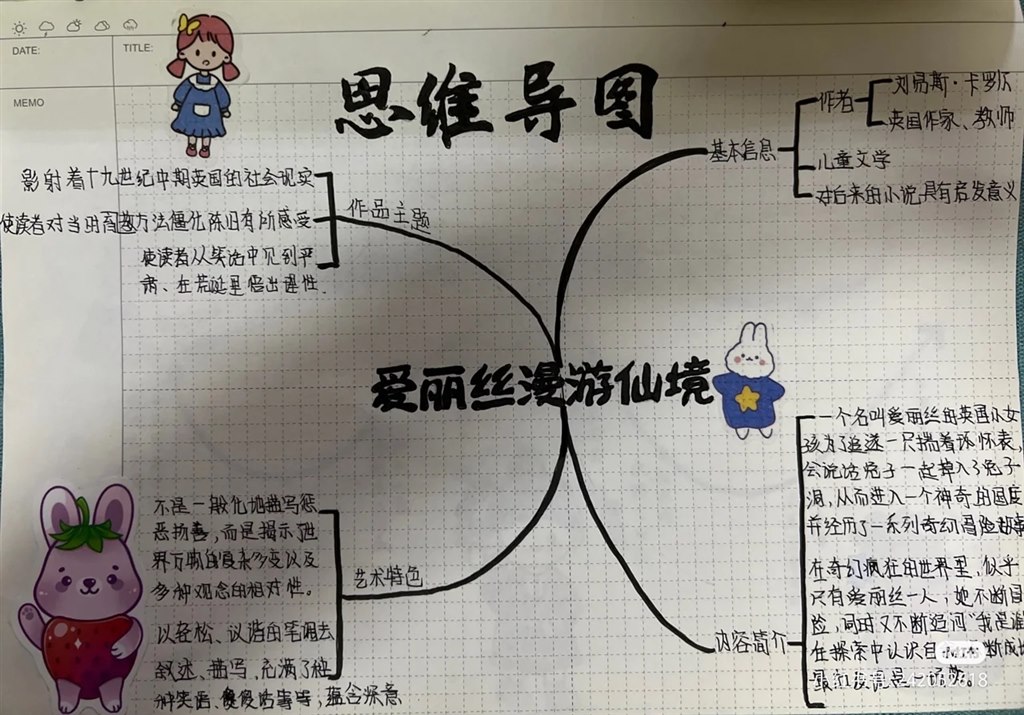 DATE:
TITLE:
MEMO
思维导图
爱丽丝漫游仙境
基本信息
作者
刘易斯·卡罗尔
英国作家、教师
儿童文学
对后来的小说具有启发意义
作品主题
影射着十九世纪中期英国的社会现实
使读者对当时育方法僵化陈旧有所感受
使读者从笑话中见到严
肃、在荒诞里悟出理性.
艺术特色
不是一般化地描写惩
恶扬善,而是揭示了世
界万物的复杂多变以及
多种观念的相对性。
以轻松、诙谐的笔调去
叙述、描写,充满了
种笑话、傻话等等,蕴含深意
内容简介
一个名叫爱丽丝的英国小女
孩为了追逐一只揣着怀表,
会说话兔子一起掉入了兔子
洞,从而进入一个神奇的国度
并经历了一系列奇幻冒险故事
在奇幻疯狂的世界里,似乎
只有爱丽丝一人,她不断冒
险,同时又不断追问“我是谁
在探索中认识自 断成
最 发现是一场